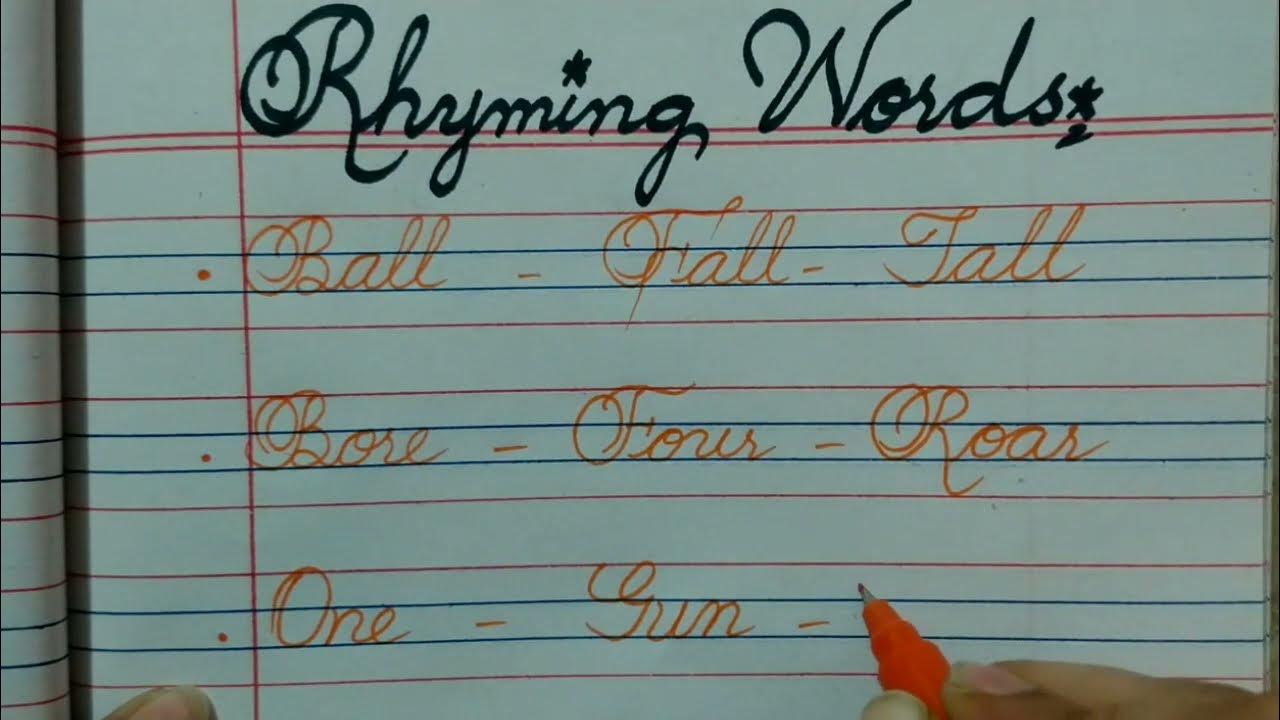 Rhyming Words
. Ball - Fall - Tall
. Bore - Four - Roar
. One - Gun -